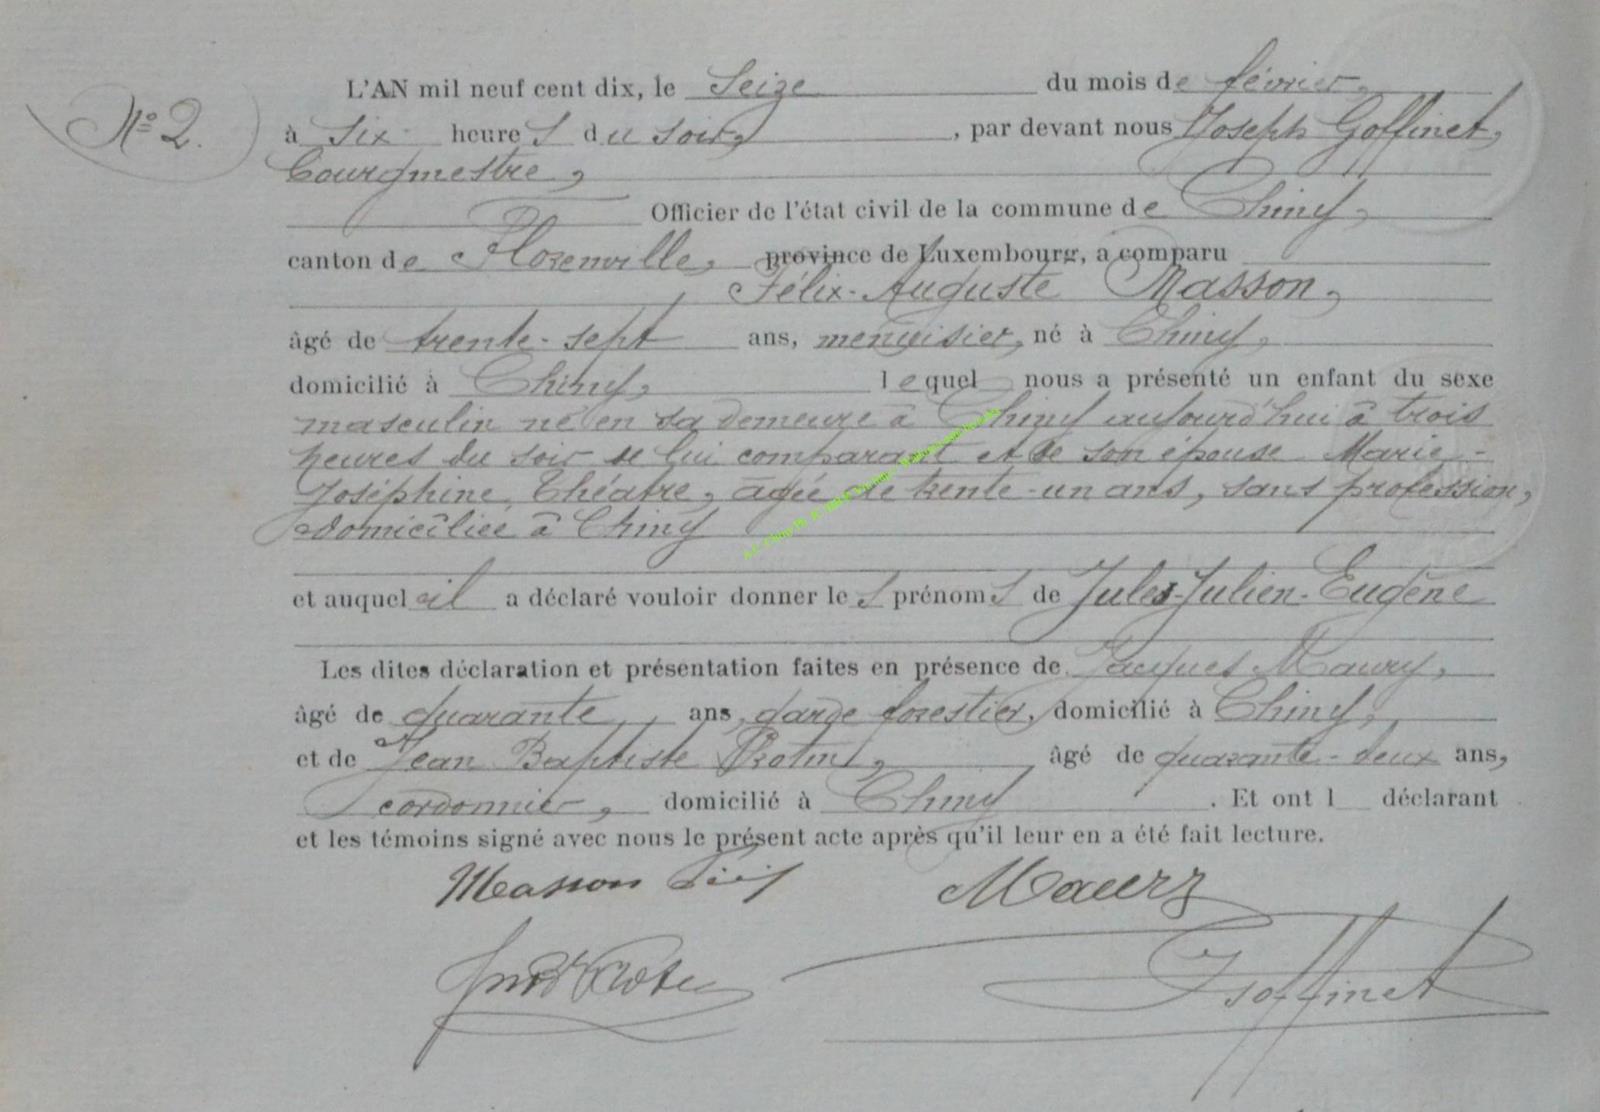 N° 2.
L'AN mil neuf cent dix, le Seize du mois de février,
à six heures du soir, par devant nous Joseph Goffinet,
bourgmestre,
Officier de l'état civil de la commune de Chiny,
canton de Florenville, province de Luxembourg, a comparu
Félix-Auguste Masson,
âgé de trente-sept ans, menuisier, né à Chiny,
domicilié à Chiny, lequel nous a présenté un enfant du sexe
masculin né en sa demeure à Chiny aujourd'hui à trois
heures du soir de lui comparant et de son épouse Marie-
Joséphine Théatre, âgée de trente-un ans, sans profession,
domiciliée à Chiny
et auquel il a déclaré vouloir donner les prénoms de Jules-Julien-Eugène
Les dites déclaration et présentation faites en présence de Jacques Maury,
âgé de quarante ans, garde forestier, domicilié à Chiny,
et de Jean Baptiste Protin, âgé de quarante-deux ans,
cordonnier, domicilié à Chiny. Et ont l déclarant
et les témoins signé avec nous le présent acte après qu'il leur en a été fait lecture.
Masson Maury
JGoffinet